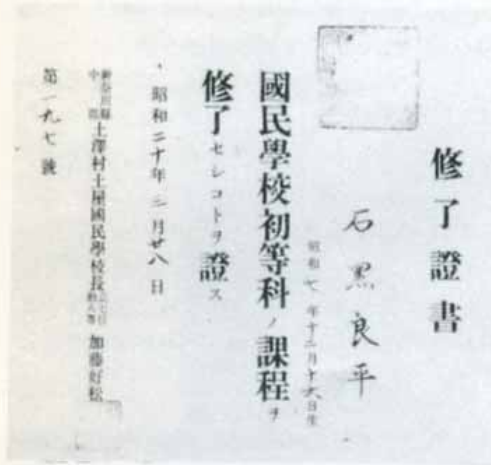 修了證書
石黑良平
昭和七年十二月十六日生
國民學校初等科ノ課程ヲ
修了セシコトヲ證ス
昭和二十年三月廿八日
神奈川縣中郡土澤村土屋國民學校長 加藤好松
第一九七號